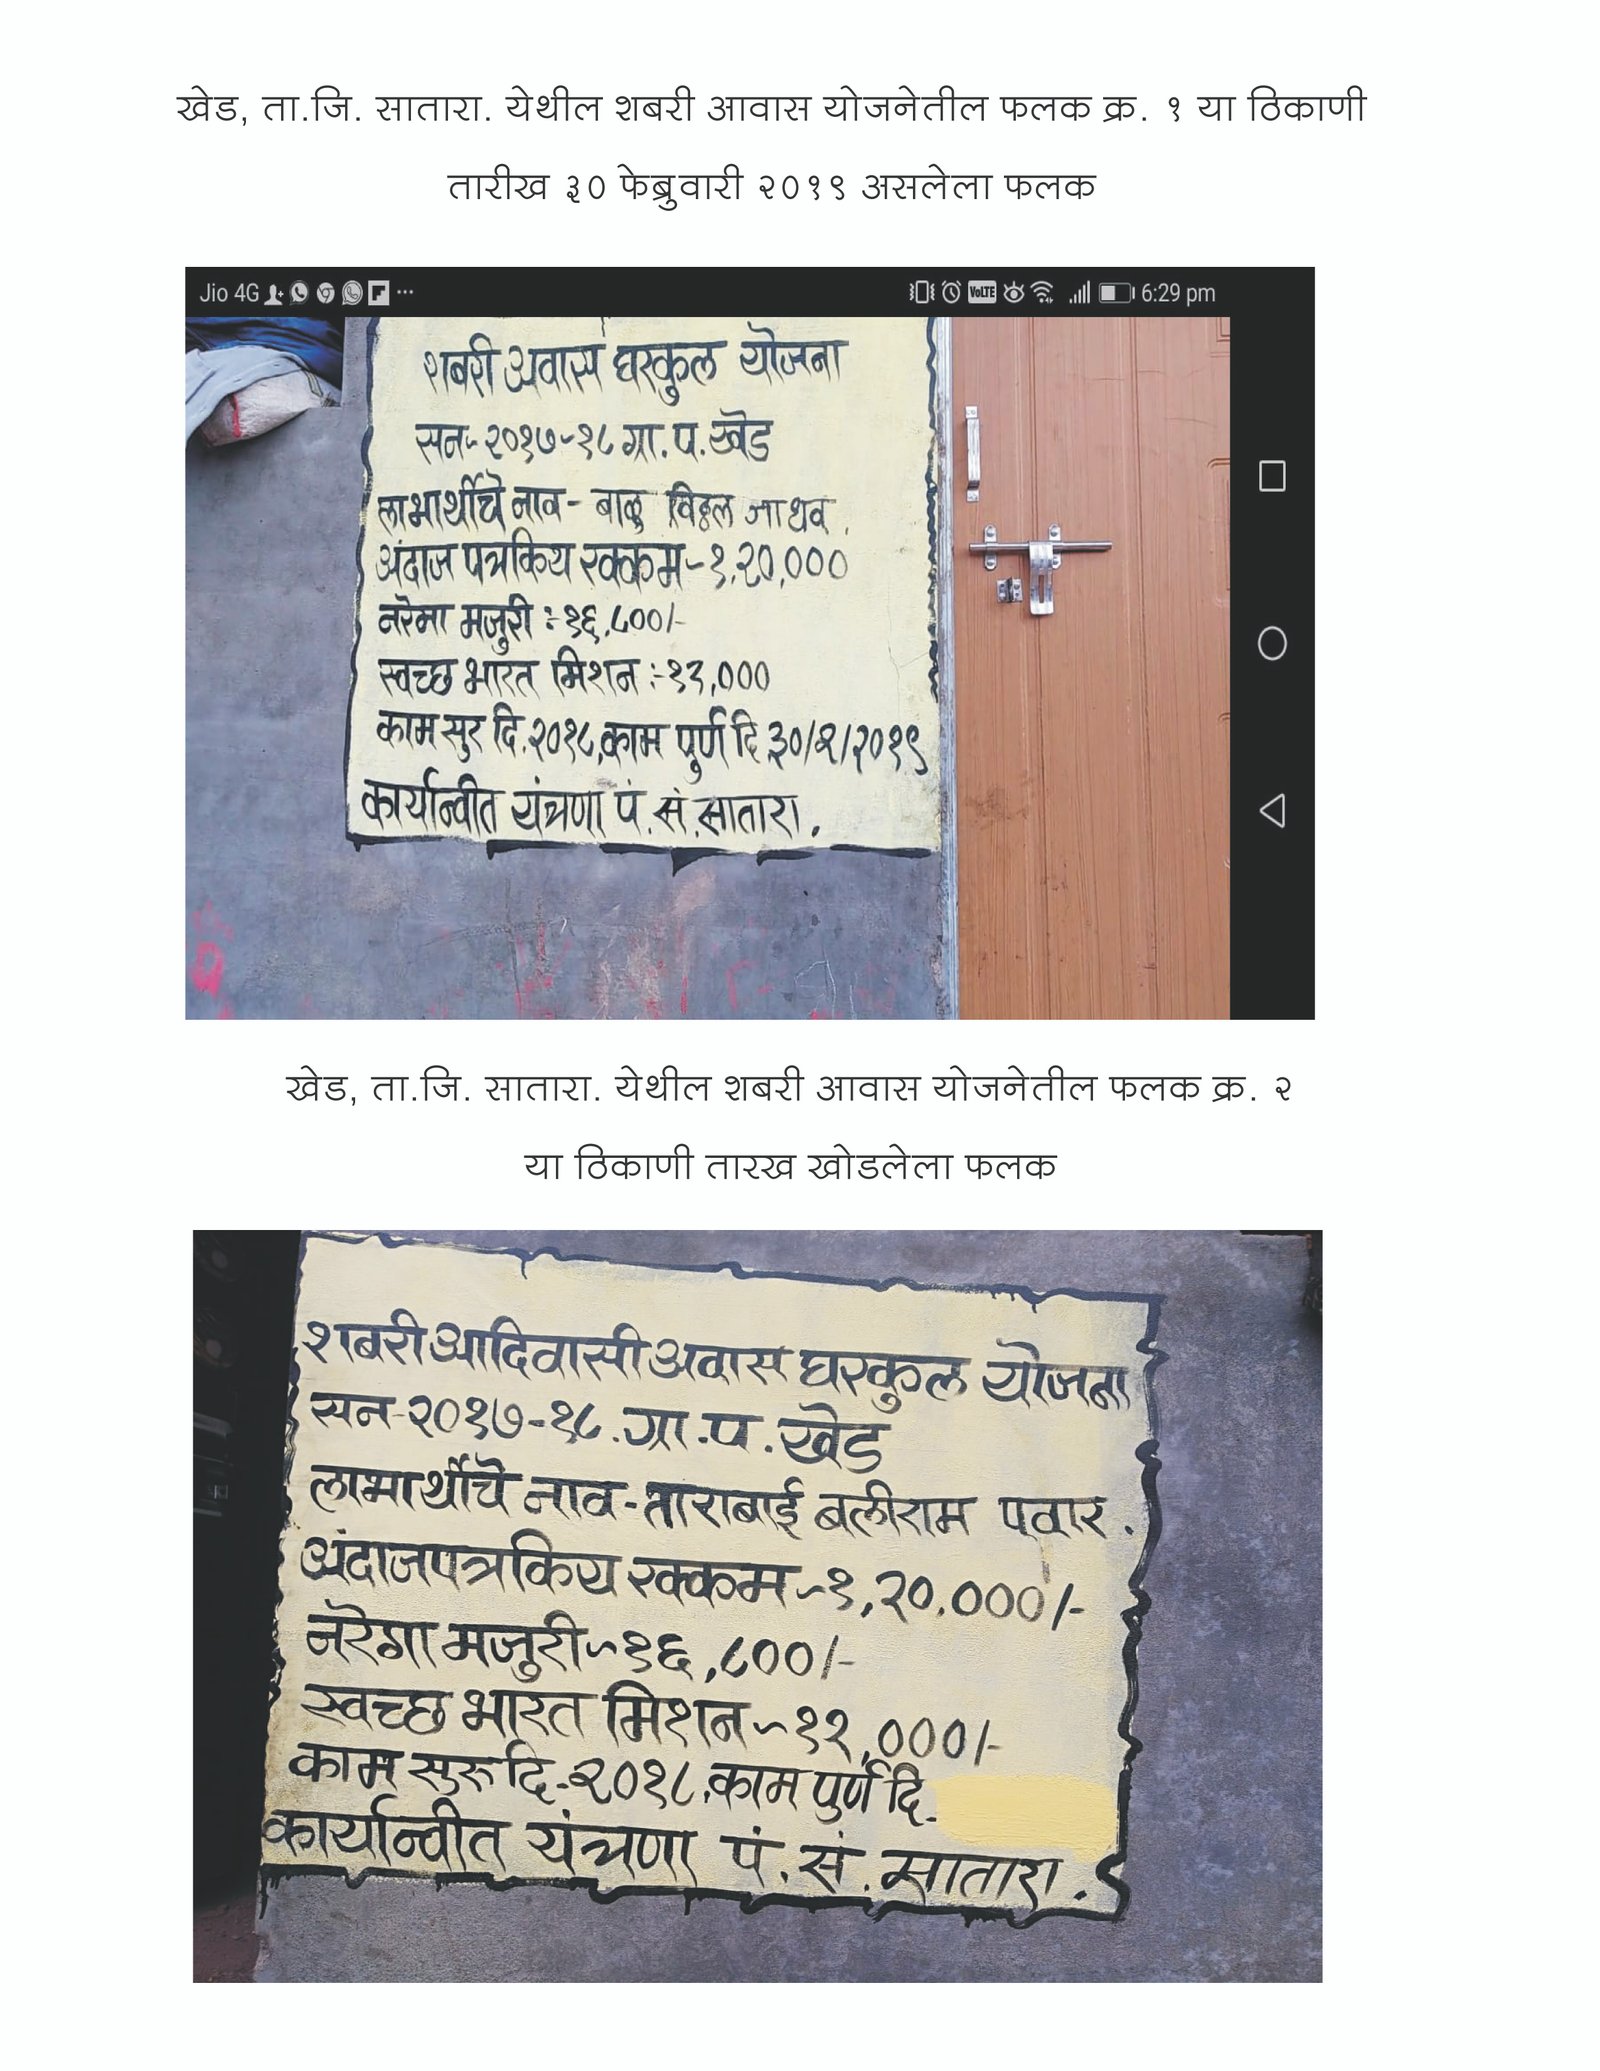 खेड, ता.जि. सातारा. येथील शबरी आवास योजनेतील फलक क्र. १ या ठिकाणी
तारीख ३० फेब्रुवारी २०१९ असलेला फलक
Jio 4G VoLTE 6:29 pm
शबरी अवास घरकुल योजना
सन-२०१७-१८ ग्रा.प.खेड
लाभार्थीचे नाव - बाळु विठ्ठल जाधव.
अंदाज पत्रकिय रक्कम-१,२०,०००
नरेगा मजुरी :- १६,८००/-
स्वच्छ भारत मिशन :- १२,०००
काम सुर दि.२०१८,काम पुर्ण दि ३०/२/२०१९
कार्यान्वीत यंत्रणा पं.सं.सातारा.
खेड, ता.जि. सातारा. येथील शबरी आवास योजनेतील फलक क्र. २
या ठिकाणी तारख खोडलेला फलक
शबरी आदिवासी अवास घरकुल योजना
सन-२०१७-१८.ग्रा.प.खेड
लाभार्थीचे नाव-ताराबाई बलीराम पवार.
अंदाजपत्रकिय रक्कम-१,२०,०००/-
नरेगा मजुरी-१६,८००/-
स्वच्छ भारत मिशन-१२,०००/-
काम सुरु दि.२०१८,काम पुर्ण दि.
कार्यान्वीत यंत्रणा पं.सं.सातारा.